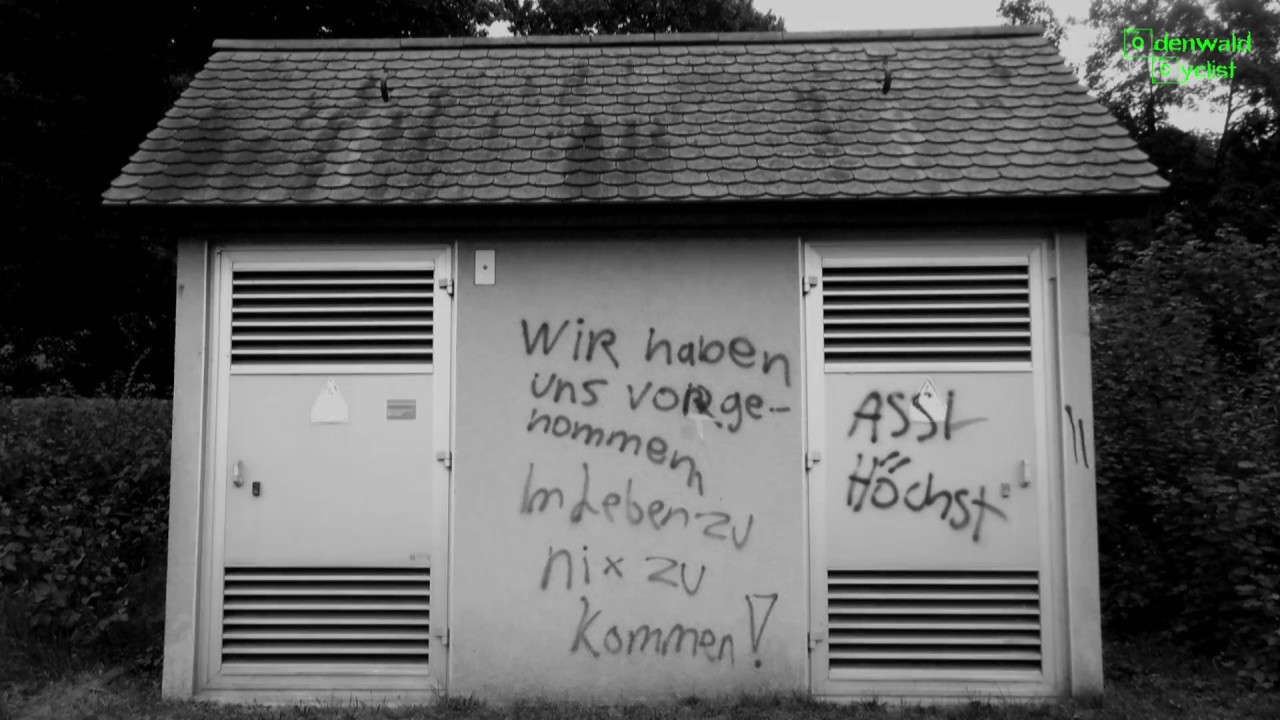 Odenwald
Cyclist
WiR haben
uns voRge-
nommen
Im Leben zu
nix zu
Kommen!
ASSL
Höchst